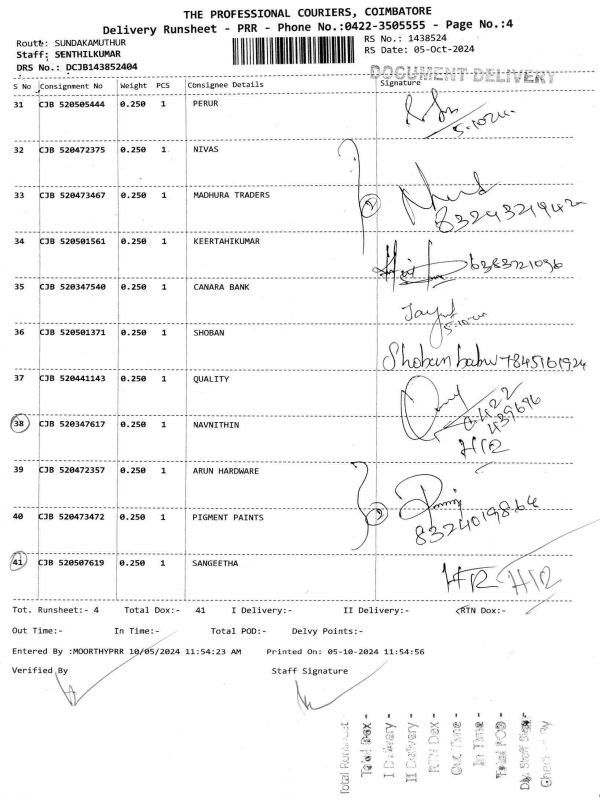 THE PROFESSIONAL COURIERS, COIMBATORE
Delivery Runsheet - PRR - Phone No.:0422-3505555 - Page No.:4
Route: SUNDAKAMUTHUR
RS No.: 1438524
Staff: SENTHILKUMAR
RS Date: 05-Oct-2024
DRS No.: DCJB143852404
DOCUMENT DELIVERY
S No Consignment No Weight PCS Consignee Details Signature
31 CJB 520505444 0.250 1 PERUR
5-10-24
32 CJB 520472375 0.250 1 NIVAS
33 CJB 520473467 0.250 1 MADHURA TRADERS
34 CJB 520501561 0.250 1 KEERTAHIKUMAR
6383721096
35 CJB 520347540 0.250 1 CANARA BANK
5-10-24
36 CJB 520501371 0.250 1 SHOBAN
Shoban babu 7845161924
37 CJB 520441143 0.250 1 QUALITY
38 CJB 520347617 0.250 1 NAVNITHIN
H/R
39 CJB 520472357 0.250 1 ARUN HARDWARE
40 CJB 520473472 0.250 1 PIGMENT PAINTS
8324019864
41 CJB 520507619 0.250 1 SANGEETHA
H/R H/R
Tot. Runsheet:- 4 Total Dox:- 41 I Delivery:- II Delivery:- RTN Dox:-
Out Time:- In Time:- Total POD:- Delvy Points:-
Entered By :MOORTHYPRR 10/05/2024 11:54:23 AM Printed On: 05-10-2024 11:54:56
Verified By Staff Signature
Total Runsheet
Total Dox -
I Delivery -
II Delivery -
RTN Dox -
Out Time -
In Time -
Total POD -
Dly. Staff Sign -
Checked By